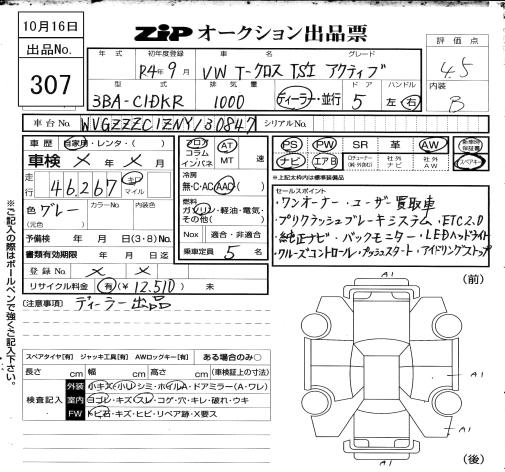 10月16日
出品No.
307
ZIP オークション出品票
評価点
4.5
内装
B
年式 初年度登録 車名 グレード
R4年9月 VW T-クロス TSI アクティブ
型式 排気量 ドア ハンドル
3BA-C1DKR 1000 ディーラー・並行 5 左 右
車台No. WVGZZZC1ZNY130847 シリアルNo.
車歴 自家用・レンタ・( )
車検 × 年 × 月
走行 46,267 キロ マイル
色 グレー カラーNo. 内装色
(元色)
予備検 年 月 日(3・8)No.
書類有効期限 年 月 日迄
登録No. × ×
リサイクル料金 有(¥ 12,510 ) 未
フロア コラム インパネ AT MT 速
冷房
無・C・AC・AAC・( )
燃料
ガソリン・軽油・電気・
その他( )
Nox 適合・非適合
乗車定員 5 名
PS PW SR 革 AW 新車時保証書
ナビ エアB 社外ナビ 社外AW スペアキー
上記太枠内は標準装備品
セールスポイント
・ワンオーナー ・ユーザー買取車
・プリクラッシュブレーキシステム ・ETC2.0
・純正ナビ ・バックモニター ・LEDヘッドライト
・クルーズコントロール ・プッシュスタート ・アイドリングストップ
(注意事項) ディーラー出品
※ご記入の際はボールペンで強くご記入下さい。
スペアタイヤ[有] ジャッキ工具[有] AWロックキー[有] ある場合のみ○
長さ cm 幅 cm 高さ cm (車検証上の寸法)
検査記入
外装 小キズ・小リ・シミ・ホイルA・ドアミラー(A・ワレ)
室内 ヨゴレ・キズ・スレ・コゲ・穴・キレ・破れ・ウキ
FW トビ石・キズ・ヒビ・リペア跡・X要ス
A1
(前)
A1
A1
A1
(後)